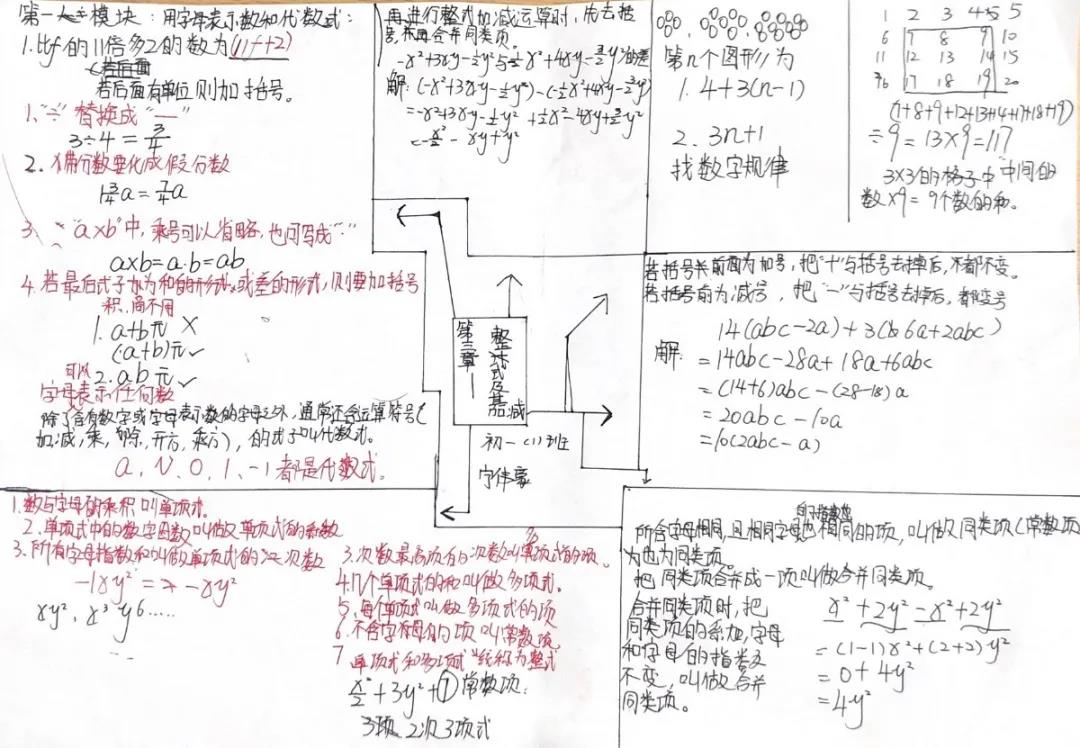 第一模块：用字母表示数和代数式：
1.比f的11倍多2的数为(11f+2)
若后面有单位则加括号。
1."÷"替换成"—"
3÷4=3/4
2.带分数要化成假分数
1 3/4 a=7/4 a
3."a×b"中，乘号可以省略，也可写成"·"
a×b=a·b=ab
4.若最后式子为和的形式或差的形式，则要加括号
积、商不用
1.a+b元 ×
(a+b)元✓
2.ab元✓
字母表示任何数
除了含有数字或字母表示数的字母之外，通常还含运算符号(
加，减，乘，除，开方，乘方)，的式子叫代数式。
a、V、0、1、-1都是代数式。
再进行整式加减运算时，先去括
号，再合并同类项。
解：(-x²+3xy-½y²)-(-½x²+4xy-3/2y²)
=-x²+3xy-½y²+½x²-4xy+3/2y²
=-x²/2-xy+y²
第n个图形为
1.4+3(n-1)
2.3n+1
找数字规律
1 2 3 4 5
6 7 8 9 10
11 12 13 14 15
16 17 18 19 20
(7+8+9+12+13+14+17+18+19)
÷9=13×9=117
3×3的格子中"中间的
数×9=9个数的和。
第三章
整式及其加减
初一(1)班
若括号前面为加号，把"+"与括号去掉后，不都不变。
若括号前为减号，把"—"与括号去掉后，都变号
14(abc-2a)+3(6a+2abc)
解：=14abc-28a+18a+6abc
=(14+6)abc-(28-18)a
=20abc-10a
=10(2abc-a)
1.数与字母的乘积叫单项式.
2.单项式中的数字因数叫做单项式的系数
3.所有字母指数和叫做单项式的次数
-1xy²=-xy²
xy²、x³y6……
3.次数最高项的次数叫单项式的项。
4.几个单项式的和叫做多项式。
5.每个单项式叫做多项式的项
6.不含字母的项叫常数项
7 单项式和多项式"统称为整式
x²/2+3y²+① 常数项：
3项 2次3项式
所含字母相同，且相同字母也相同的项，叫做同类项(常数项
为也为同类项。
把同类项合并成一项叫做合并同类项。
合并同类项时，把
同类项的系加，字母
和字母的指数
不变，叫做合并
同类项。
x²+2y²-x²+2y²
=(1-1)x²+(2+2)·y²
=0+4y²
=4y²